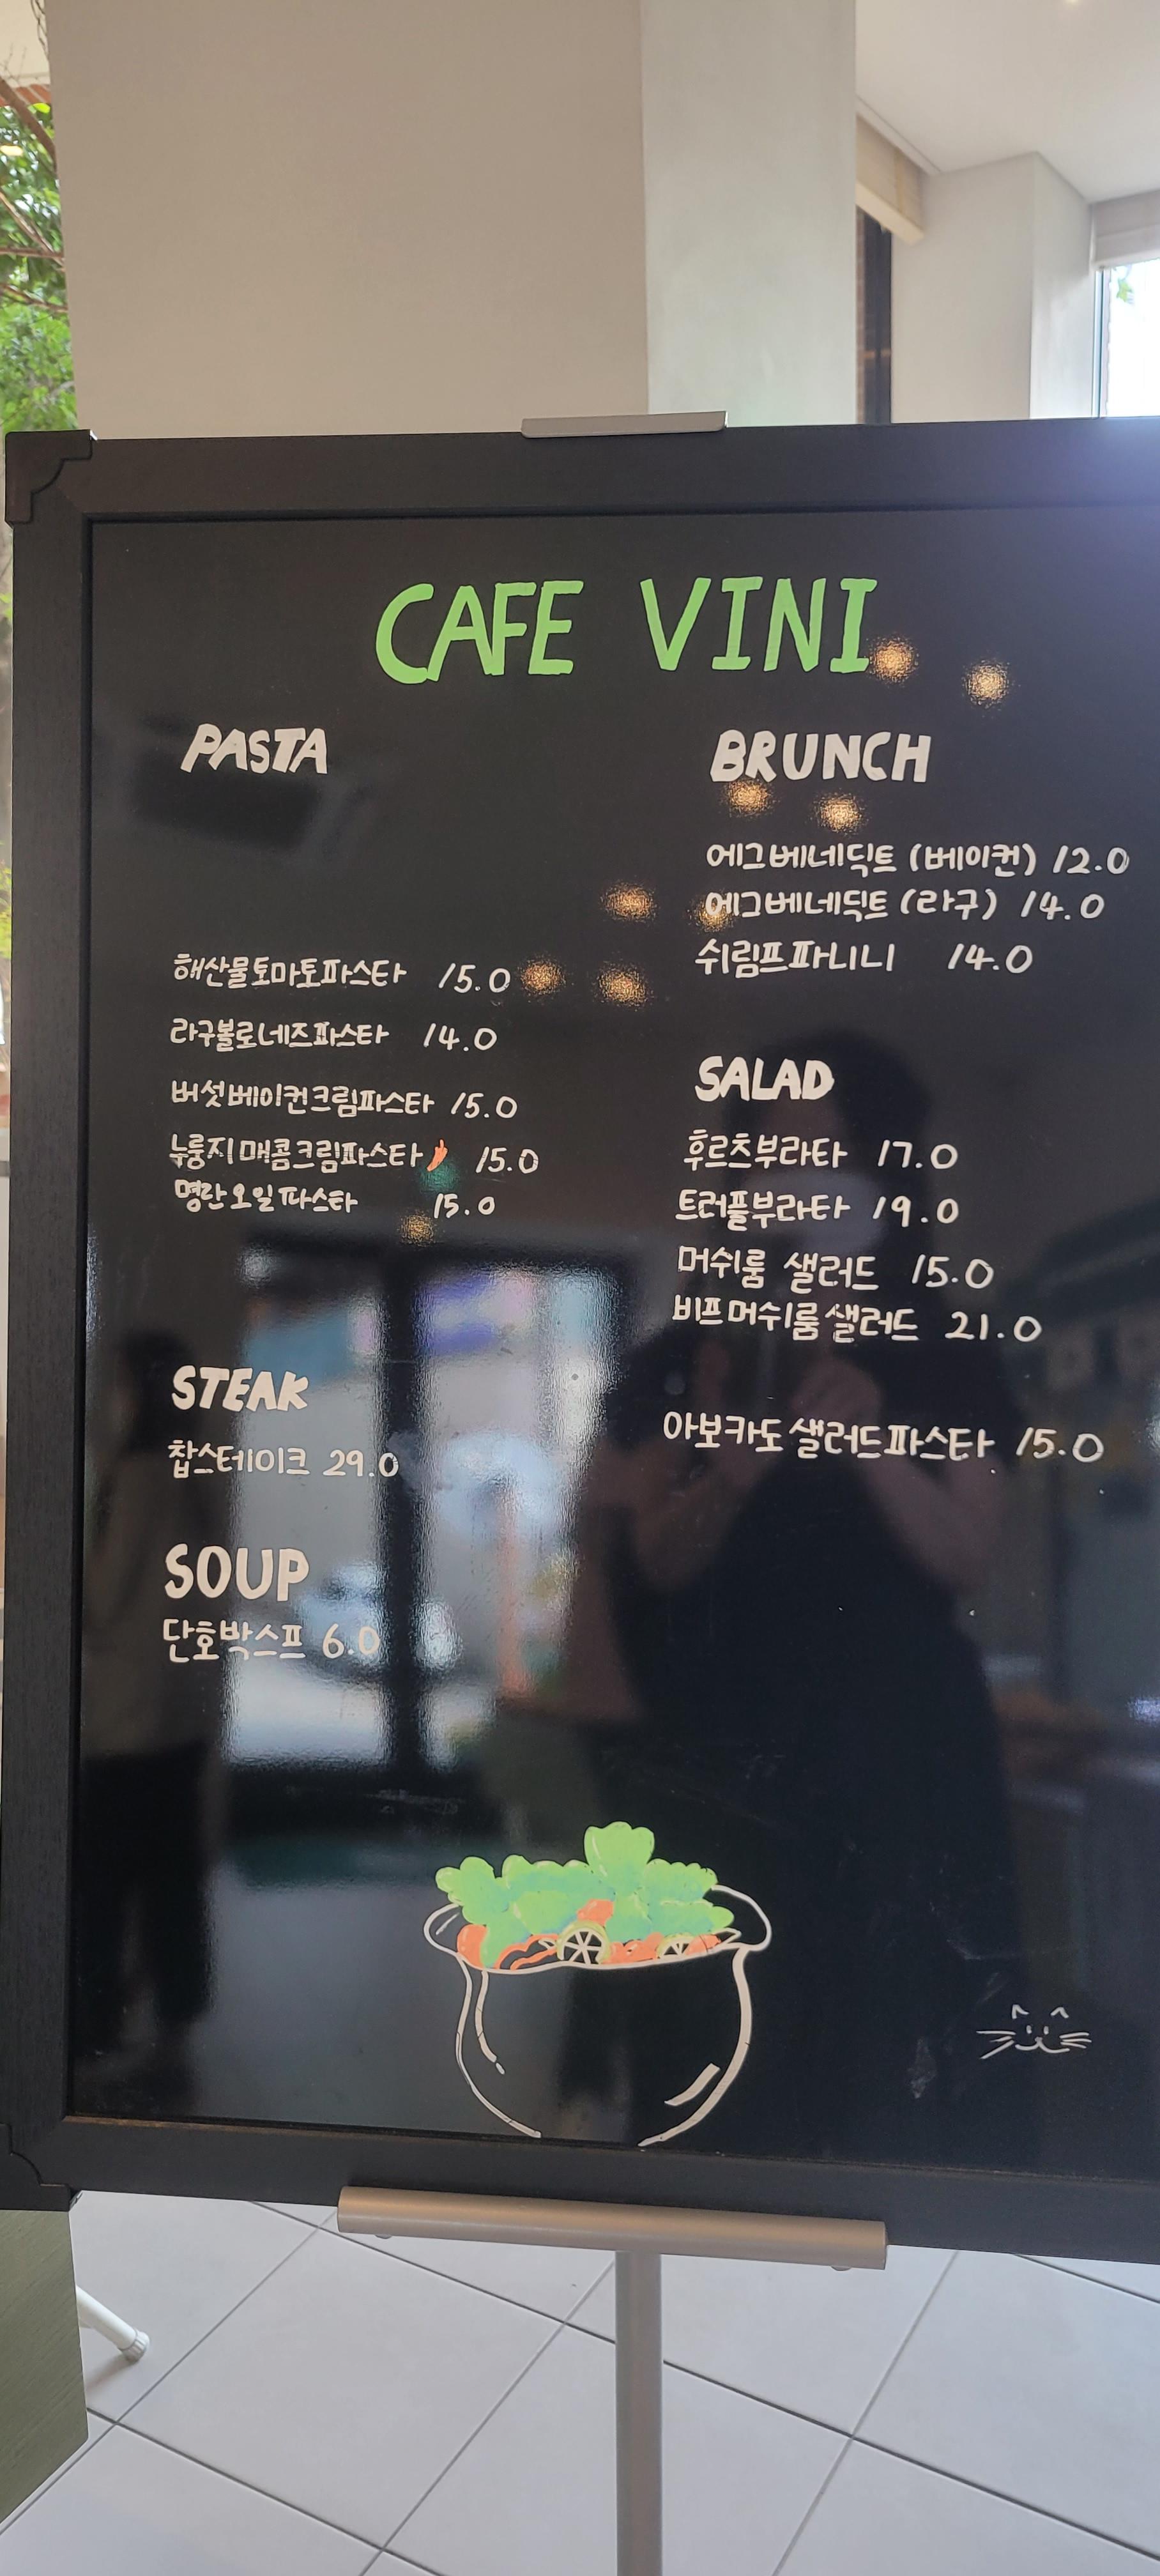 CAFE VINI
PASTA
해산물토마토파스타 15.0
라구볼로네즈파스타 14.0
버섯베이컨크림파스타 15.0
누룽지매콤크림파스타 15.0
명란오일파스타 15.0
STEAK
찹스테이크 29.0
SOUP
단호박스프 6.0
BRUNCH
에그베네딕트 (베이컨) 12.0
에그베네딕트 (라구) 14.0
쉬림프파니니 14.0
SALAD
후르츠부라타 17.0
트러플부라타 19.0
머쉬룸 샐러드 15.0
비프머쉬룸샐러드 21.0
아보카도샐러드파스타 15.0